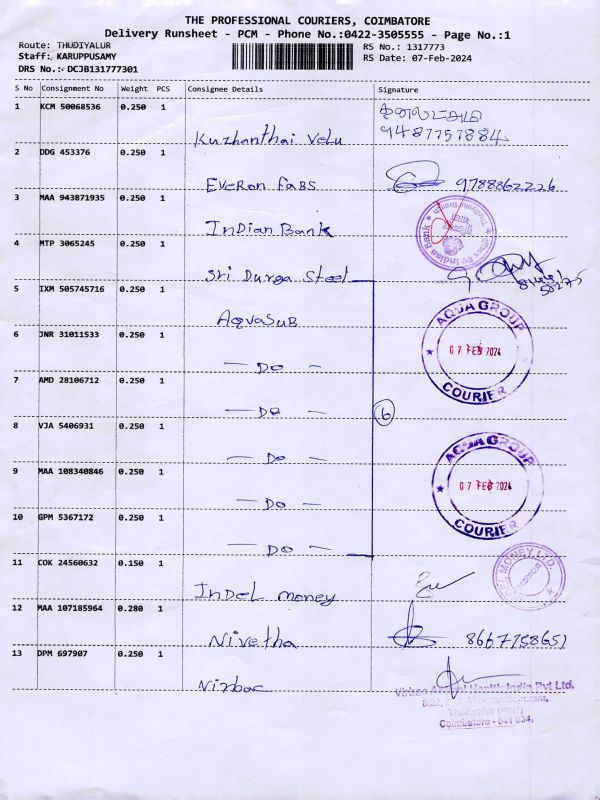 THE PROFESSIONAL COURIERS, COIMBATORE
Delivery Runsheet - PCM - Phone No.:0422-3505555 - Page No.:1
Route: THUDIYALUR
RS No.: 1317773
Staff: KARUPPUSAMY
RS Date: 07-Feb-2024
DRS No.:- DCJB131777301
S No Consignment No Weight PCS Consignee Details Signature
1 KCM 50068536 0.250 1
9487757884
Kuzhanthai Velu
2 DDG 453376 0.250 1
Everon Fabs 9788862226
3 MAA 943871935 0.250 1
Indian Bank
Indian Bank
4 MTP 3065245 0.250 1
Sri Durga Steel
5 IXM 505745716 0.250 1
AquaSub
AQUA GROUP
07 FEB 2024
COURIER
6 JNR 31011533 0.250 1
— Do —
7 AMD 28106712 0.250 1
— Do — 6
8 VJA 5406931 0.250 1
— Do —
AQUA GROUP
07 FEB 2024
COURIER
9 MAA 108340846 0.250 1
— Do —
10 GPM 5367172 0.250 1
— Do —
11 COK 24560632 0.150 1
Indel money
MONEY LTD.
12 MAA 107185964 0.280 1
Nivetha 8667758651
13 DPM 697907 0.250 1
Virbac
Virbac Animal Health India Pvt Ltd,
Coimbatore - 641 034.